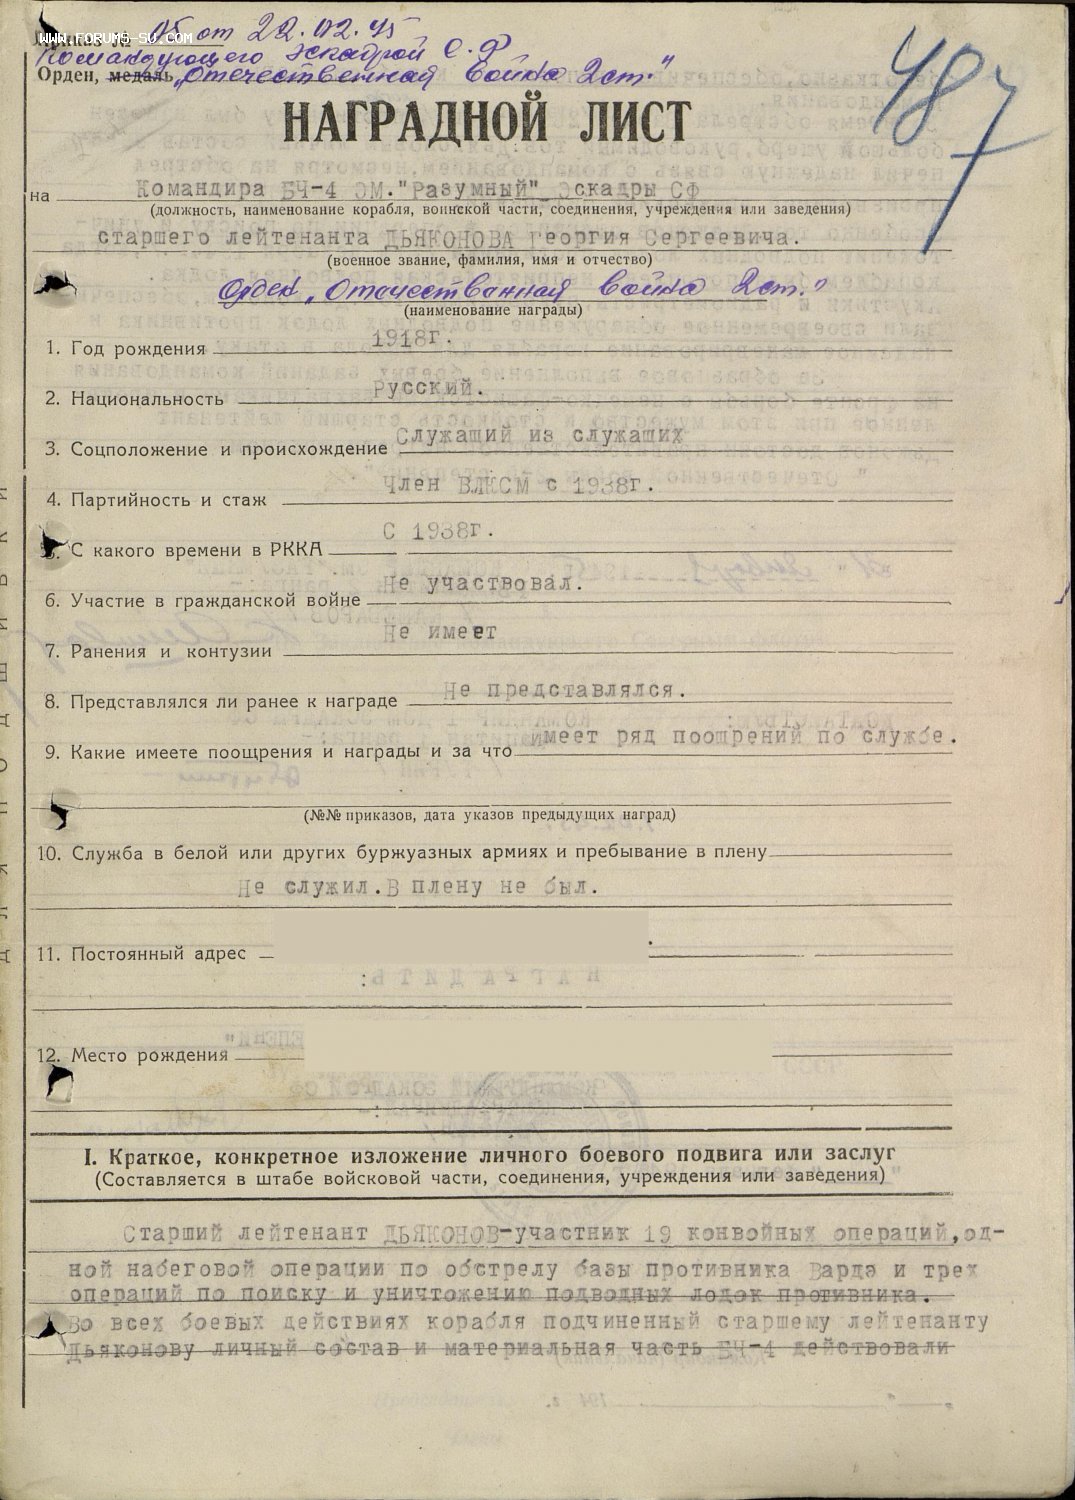 WWW.FORUMS-SU.COM
Приказ № 05 от 22.02.45
Командующего эскадрой С.Ф.
Орден, медаль „Отечественная война 2 ст."
487
НАГРАДНОЙ ЛИСТ
на Командира БЧ-4 ЭМ."Разумный" Эскадры СФ
(должность, наименование корабля, воинской части, соединения, учреждения или заведения)
старшего лейтенанта ДЬЯКОНОВА Георгия Сергеевича.
(военное звание, фамилия, имя и отчество)
Орден „Отечественная война 2 ст."
(наименование награды)
1. Год рождения 1918г.
2. Национальность Русский.
3. Соцположение и происхождение Служащий из служащих
4. Партийность и стаж Член ВЛКСМ с 1938г.
5. С какого времени в РККА С 1938г.
6. Участие в гражданской войне Не участвовал.
7. Ранения и контузии Не имеет
8. Представлялся ли ранее к награде Не представлялся.
9. Какие имеете поощрения и награды и за что имеет ряд поощрений по службе.
(№№ приказов, дата указов предыдущих наград)
10. Служба в белой или других буржуазных армиях и пребывание в плену
Не служил. В плену не был.
11. Постоянный адрес
12. Место рождения
I. Краткое, конкретное изложение личного боевого подвига или заслуг
(Составляется в штабе войсковой части, соединения, учреждения или заведения)
Старший лейтенант ДЬЯКОНОВ-участник 19 конвойных операций, од-
ной набеговой операции по обстрелу базы противника Вардэ и трех
операций по поиску и уничтожению подводных лодок противника.
Во всех боевых действиях корабля подчиненный старшему лейтенанту
Дьяконову личный состав и материальная часть БЧ-4 действовали